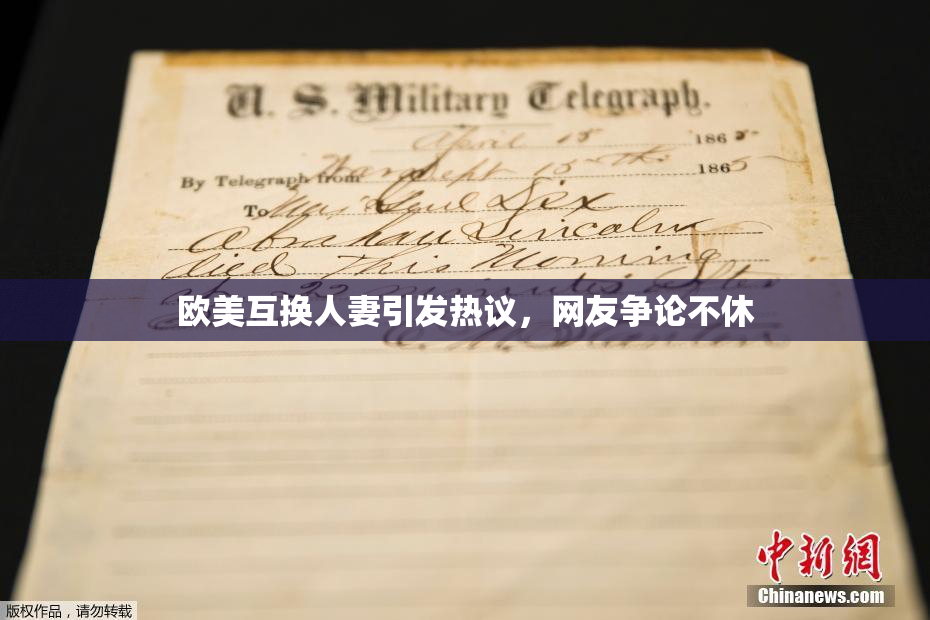 U. S. Military Telegraph.
April 15 1865
By Telegraph from War Dept 15th 1865
To Maj Genl Dix
Abraham Lincoln
died This Morning
at 22 minutes after
欧美互换人妻引发热议，网友争论不休
中新网
Chinanews.com
版权作品，请勿转载